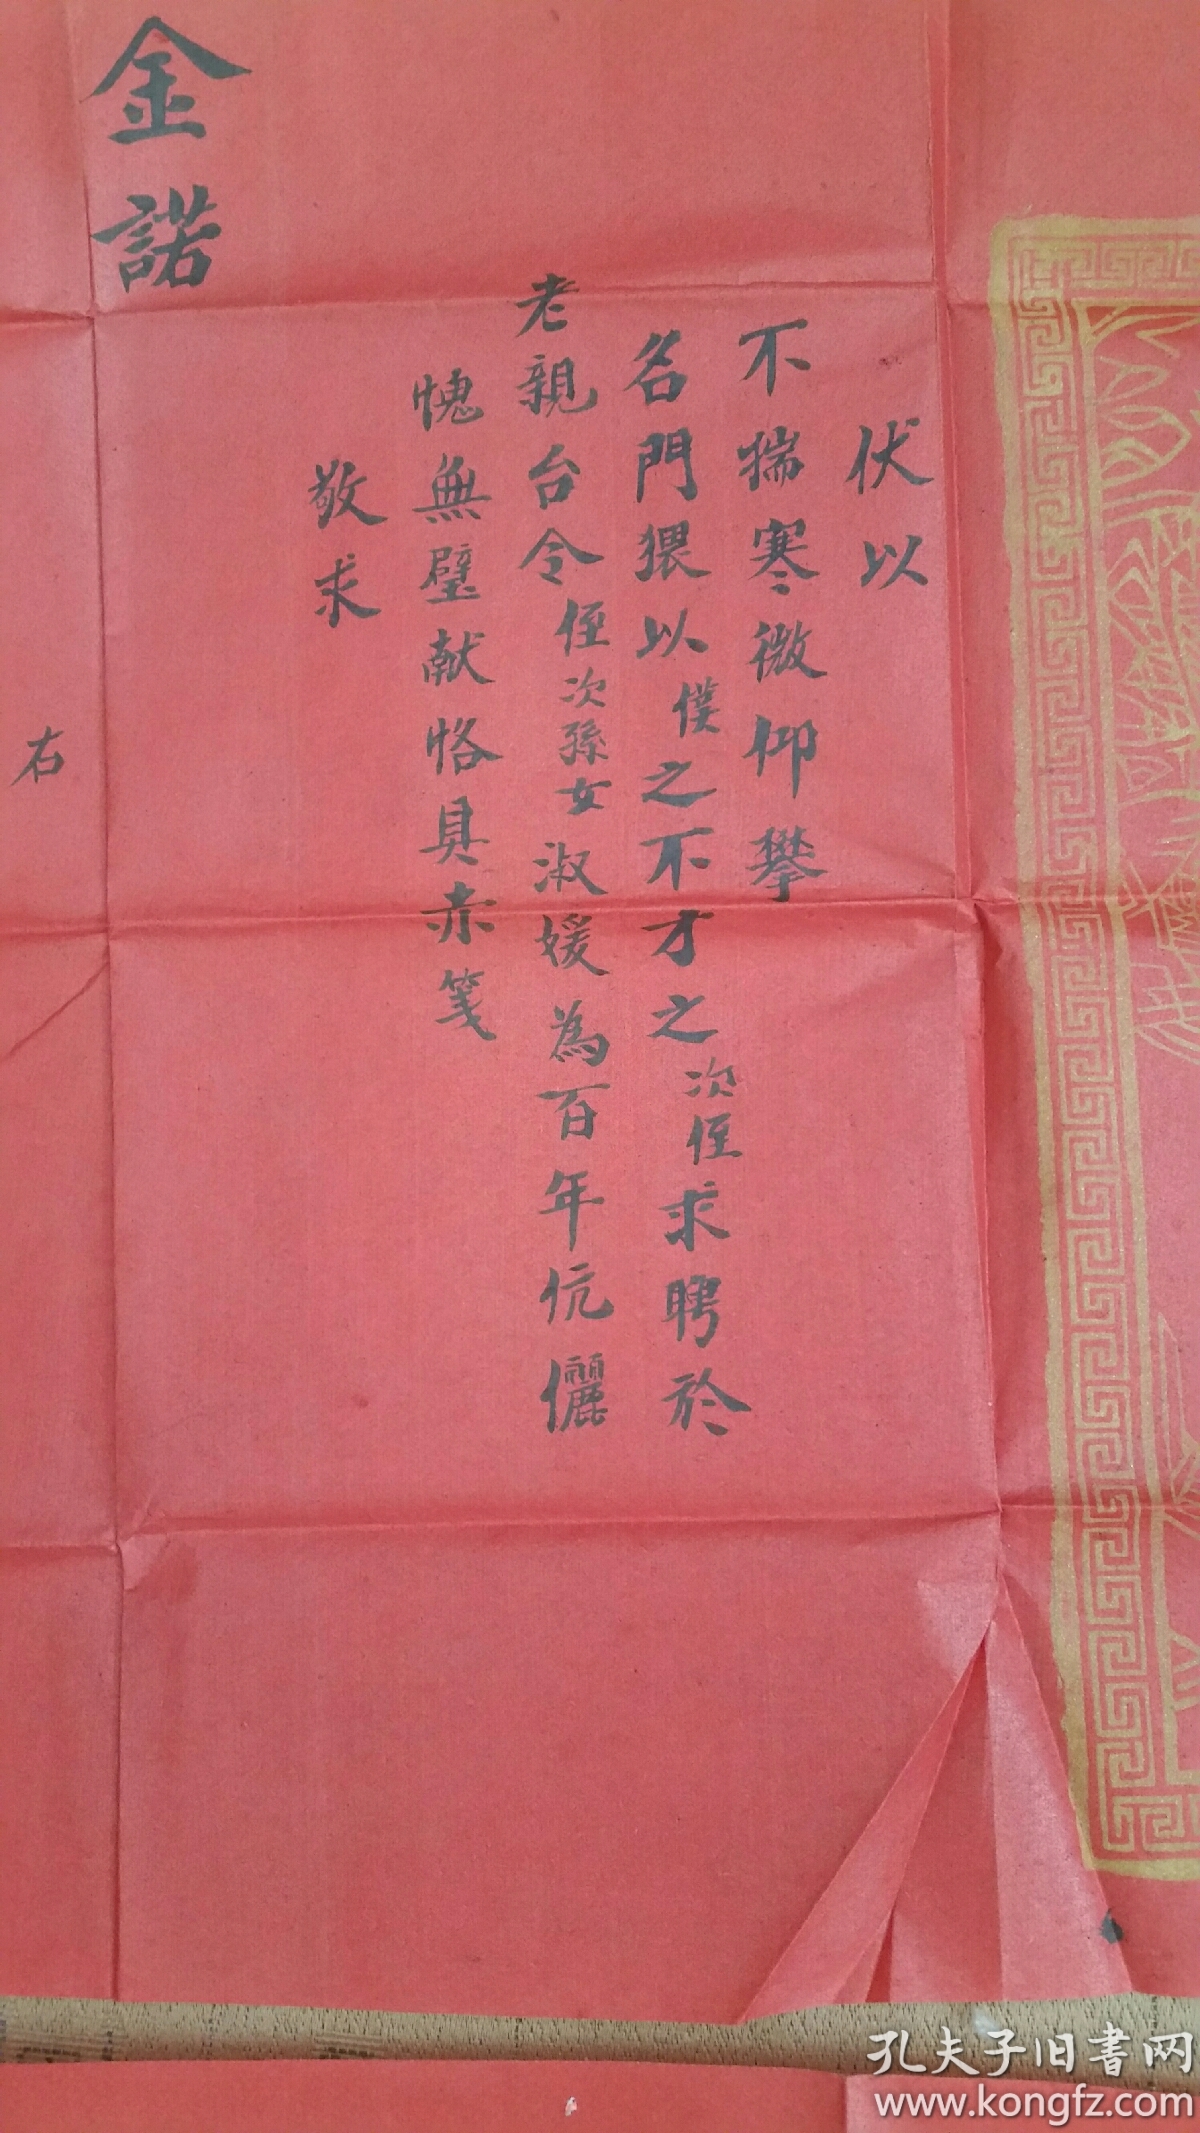 伏以
不揣寒微仰攀
名門猥以僕之不才之次侄求聘於
老親台令侄次孫女淑媛為百年伉儷
愧無璧献恪具赤箋
敬求
金諾
右
孔夫子旧書网
www.kongfz.com